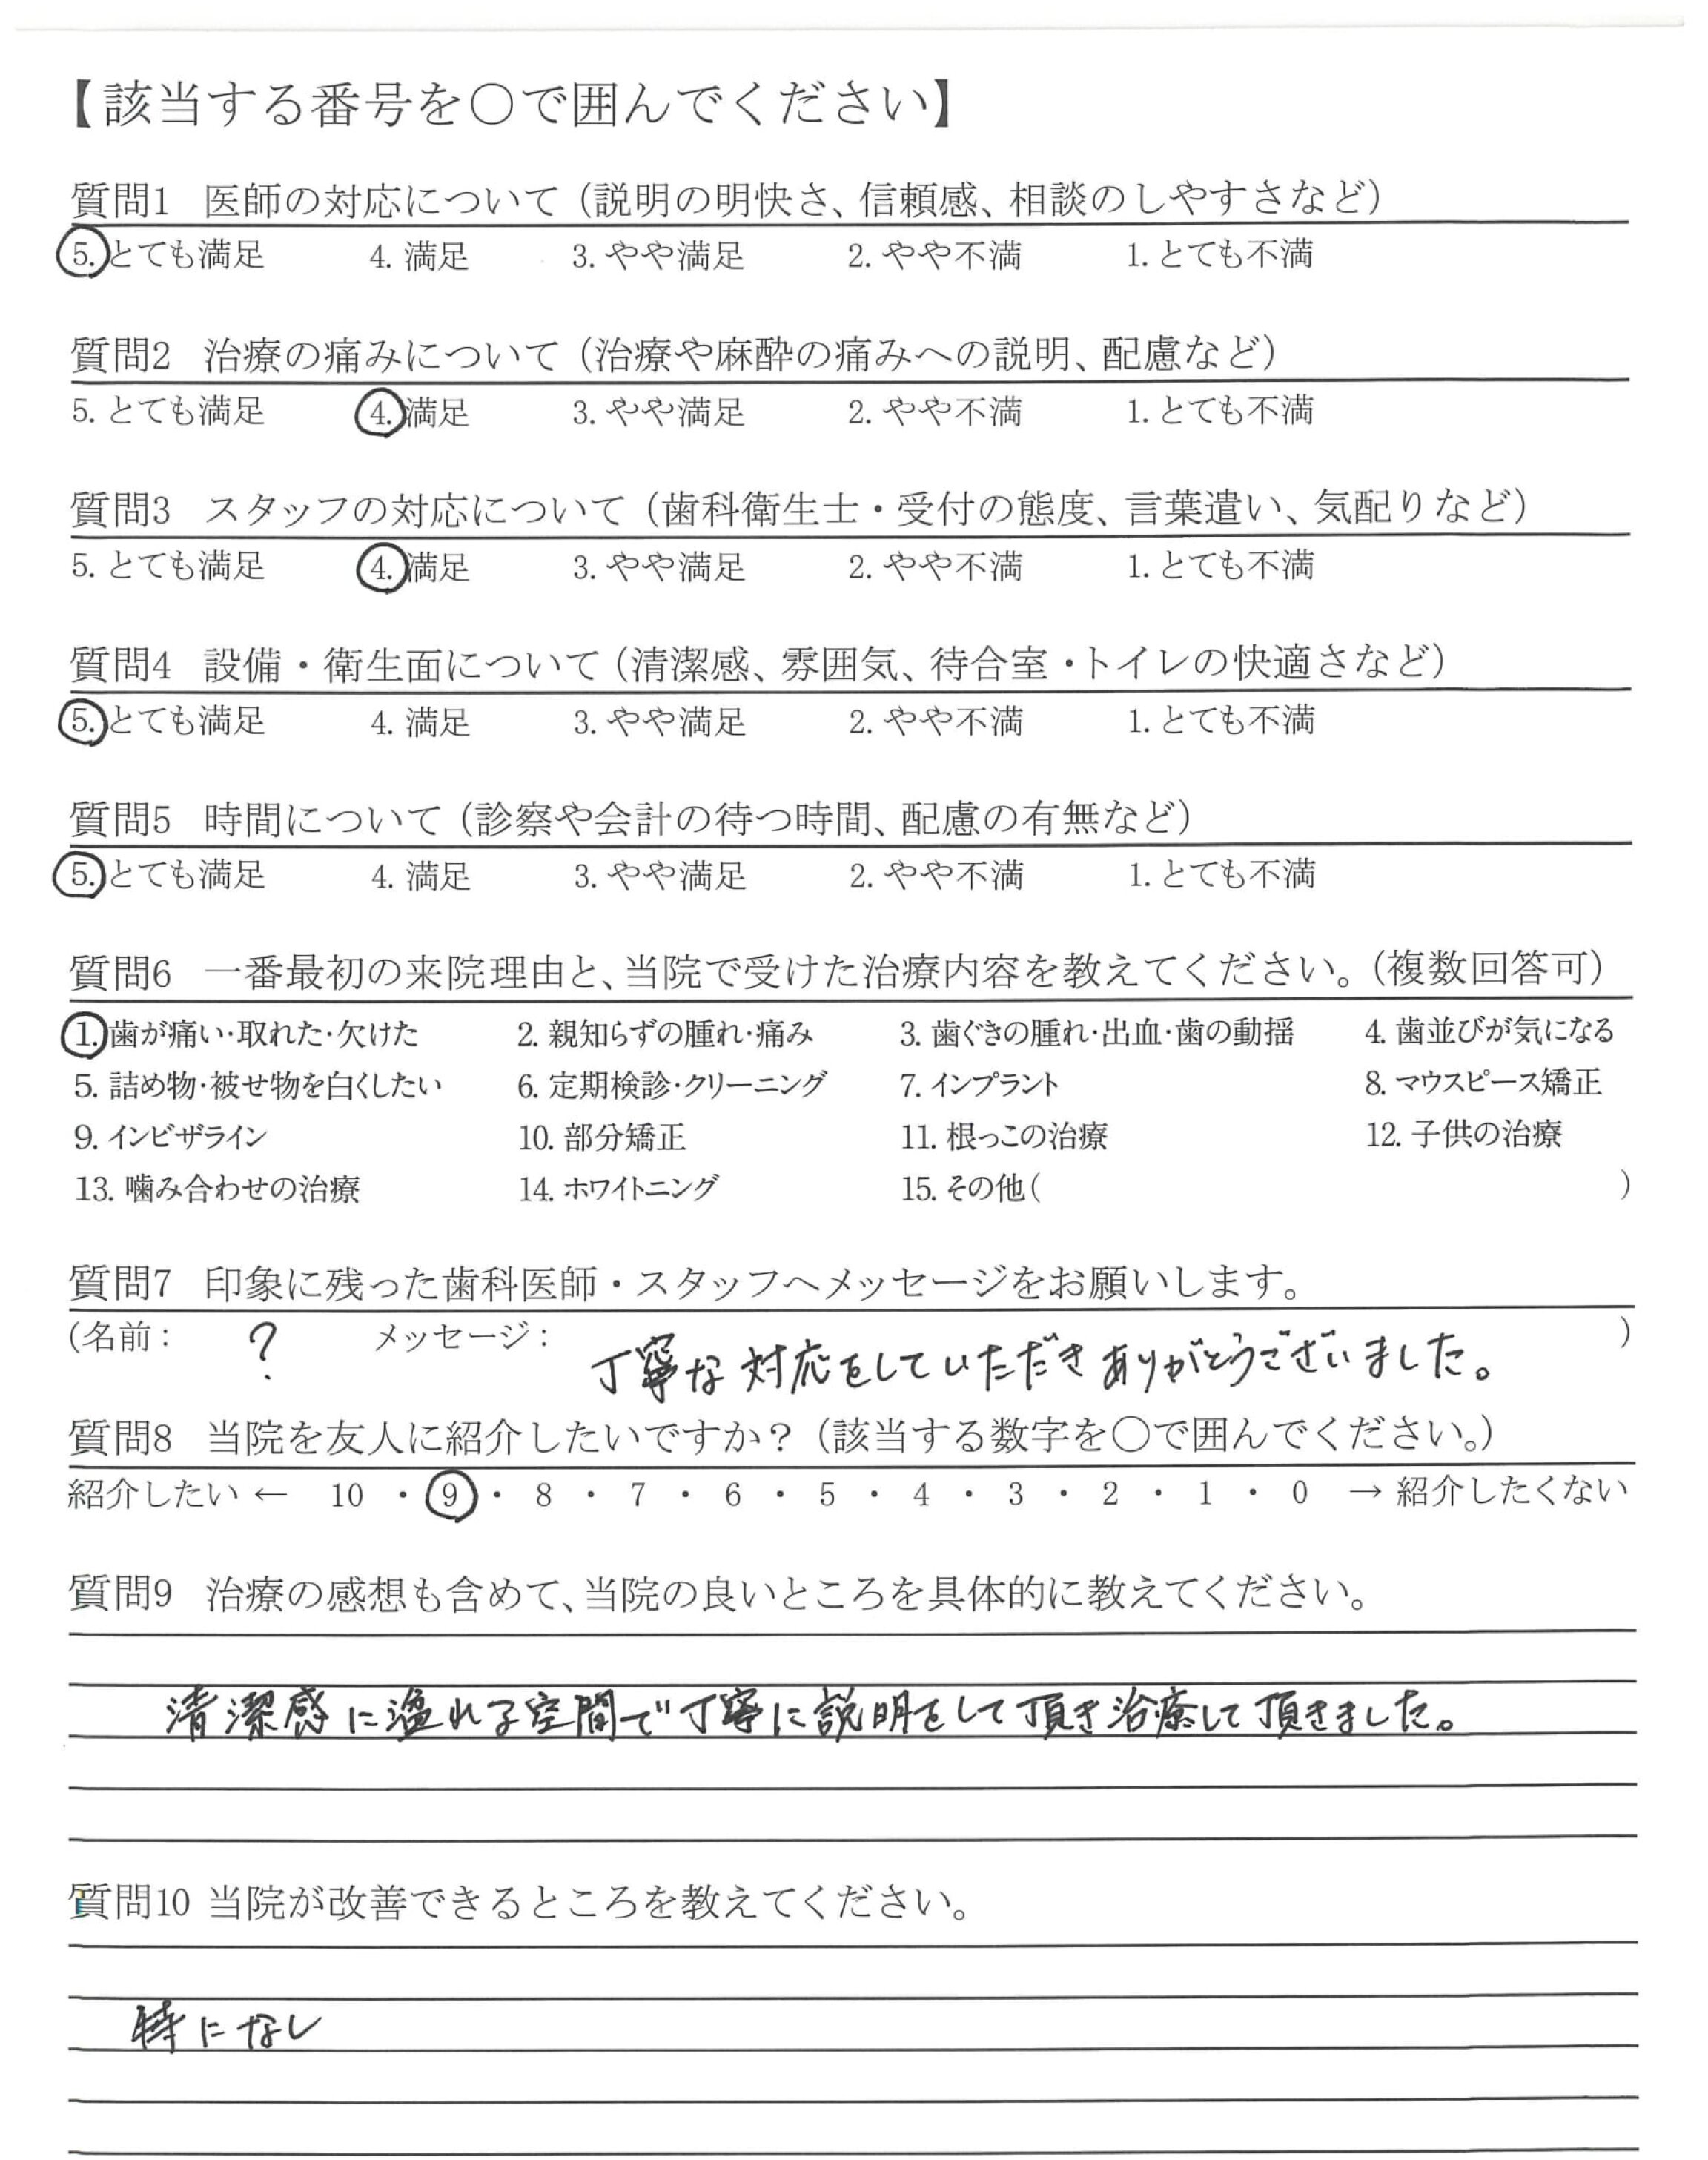 【該当する番号を○で囲んでください】
質問1 医師の対応について（説明の明快さ、信頼感、相談のしやすさなど）
5. とても満足 4. 満足 3. やや満足 2. やや不満 1. とても不満
質問2 治療の痛みについて（治療や麻酔の痛みへの説明、配慮など）
5. とても満足 4. 満足 3. やや満足 2. やや不満 1. とても不満
質問3 スタッフの対応について（歯科衛生士・受付の態度、言葉遣い、気配りなど）
5. とても満足 4. 満足 3. やや満足 2. やや不満 1. とても不満
質問4 設備・衛生面について（清潔感、雰囲気、待合室・トイレの快適さなど）
5. とても満足 4. 満足 3. やや満足 2. やや不満 1. とても不満
質問5 時間について（診察や会計の待つ時間、配慮の有無など）
5. とても満足 4. 満足 3. やや満足 2. やや不満 1. とても不満
質問6 一番最初の来院理由と、当院で受けた治療内容を教えてください。（複数回答可）
1. 歯が痛い・取れた・欠けた 2. 親知らずの腫れ・痛み 3. 歯ぐきの腫れ・出血・歯の動揺 4. 歯並びが気になる
5. 詰め物・被せ物を白くしたい 6. 定期検診・クリーニング 7. インプラント 8. マウスピース矯正
9. インビザライン 10. 部分矯正 11. 根っこの治療 12. 子供の治療
13. 噛み合わせの治療 14. ホワイトニング 15. その他（ ）
質問7 印象に残った歯科医師・スタッフへメッセージをお願いします。
（名前： ? メッセージ： 丁寧な対応をしていただきありがとうございました。 ）
質問8 当院を友人に紹介したいですか？（該当する数字を○で囲んでください。）
紹介したい ← 10 ・ 9 ・ 8 ・ 7 ・ 6 ・ 5 ・ 4 ・ 3 ・ 2 ・ 1 ・ 0 → 紹介したくない
質問9 治療の感想も含めて、当院の良いところを具体的に教えてください。
清潔感に溢れる空間で丁寧に説明をして頂き治療して頂きました。
質問10 当院が改善できるところを教えてください。
特になし